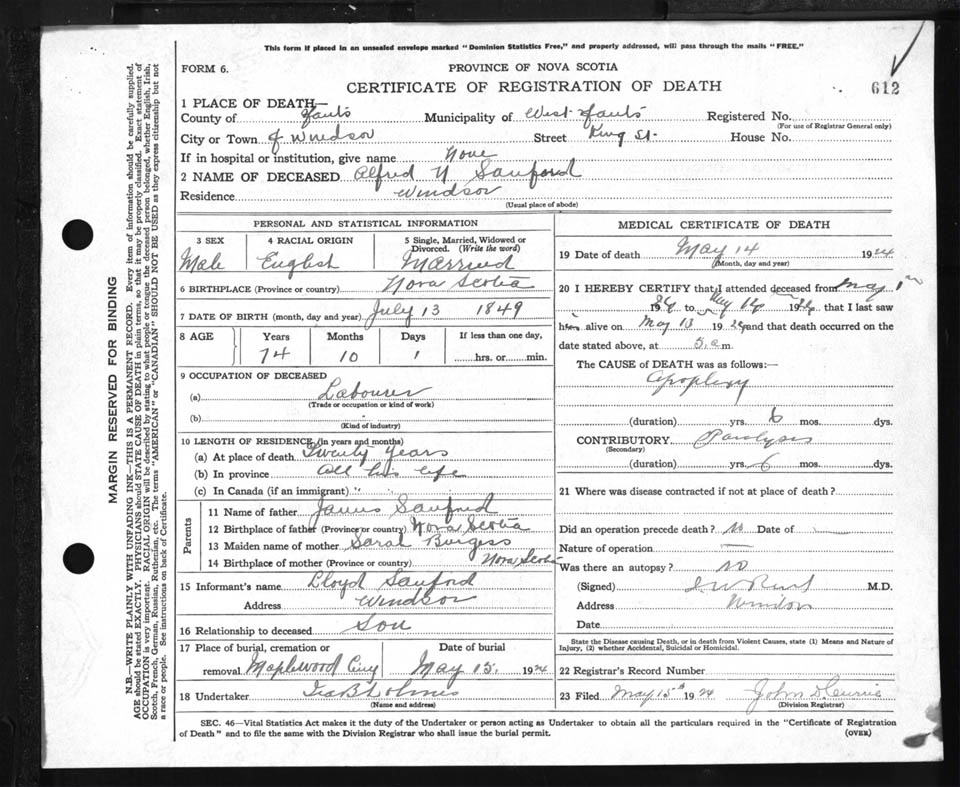 This form if placed in an unsealed envelope marked "Dominion Statistics Free," and properly addressed, will pass through the mails "FREE."
FORM 6.
PROVINCE OF NOVA SCOTIA
CERTIFICATE OF REGISTRATION OF DEATH
612
1 PLACE OF DEATH—
County of Hants Municipality of West Hants Registered No.
(For use of Registrar General only)
City or Town of Windsor Street King St. House No.
If in hospital or institution, give name None
2 NAME OF DECEASED Alfred N Sanford
Residence Windsor
(Usual place of abode)
PERSONAL AND STATISTICAL INFORMATION
3 SEX 4 RACIAL ORIGIN 5 Single, Married, Widowed or Divorced. (Write the word)
Male English Married
6 BIRTHPLACE (Province or country) Nova Scotia
7 DATE OF BIRTH (month, day and year) July 13 1849
8 AGE Years Months Days If less than one day,
74 10 1 hrs. or min.
9 OCCUPATION OF DECEASED
(a) Labourer
(Trade or occupation or kind of work)
(b)
(Kind of industry)
10 LENGTH OF RESIDENCE (in years and months)
(a) At place of death Twenty Years
(b) In province All his life
(c) In Canada (if an immigrant) "
Parents
11 Name of father James Sanford
12 Birthplace of father (Province or country) Nova Scotia
13 Maiden name of mother Sarah Burgess
14 Birthplace of mother (Province or country) Nova Scotia
15 Informant's name Lloyd Sanford
Address Windsor
16 Relationship to deceased Son
17 Place of burial, cremation or removal Maplewood Cmy Date of burial May 15. 1924
18 Undertaker
(Name and address)
MEDICAL CERTIFICATE OF DEATH
19 Date of death May 14 1924
(Month, day and year)
20 I HEREBY CERTIFY that I attended deceased from May 1st
1924 to May 14 1924 that I last saw
him alive on May 13 1924 and that death occurred on the
date stated above, at 5. a m.
The CAUSE of DEATH was as follows:—
Apoplexy
(duration) yrs. 6 mos. dys.
CONTRIBUTORY Paralysis
(Secondary)
(duration) yrs. 6 mos. dys.
21 Where was disease contracted if not at place of death?
Did an operation precede death? No Date of —
Nature of operation —
Was there an autopsy? NO
(Signed) M.D.
Address Windsor
Date
State the Disease causing Death, or in death from Violent Causes, state (1) Means and Nature of Injury, (2) whether Accidental, Suicidal or Homicidal.
22 Registrar's Record Number
23 Filed May 15th 1924 John D Currie
(Division Registrar)
SEC. 46—Vital Statistics Act makes it the duty of the Undertaker or person acting as Undertaker to obtain all the particulars required in the "Certificate of Registration
of Death" and to file the same with the Division Registrar who shall issue the burial permit.
(OVER)
MARGIN RESERVED FOR BINDING
N.B.—WRITE PLAINLY WITH UNFADING INK—THIS IS A PERMANENT RECORD. Every item of information should be carefully supplied.
AGE should be stated EXACTLY. PHYSICIANS should STATE CAUSE OF DEATH in plain terms, so that it may be properly classified. Exact statement of
OCCUPATION is very important. RACIAL ORIGIN will be described by stating to what people or tongue the deceased person belonged, whether English, Irish,
Scotch, French, German, Russian, Ruthenian, etc. The terms "AMERICAN" or "CANADIAN" SHOULD NOT BE USED as they express citizenship but not
a race or people. See instructions on back of Certificate.